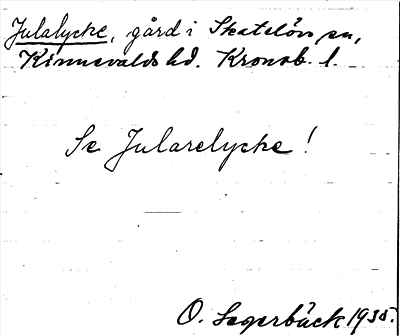 Julalycke, gård i Skatelöv sn,
Kinnevalds hd. Kronob. l.
Se Jularelycke!
O. Segerbäck 1935.